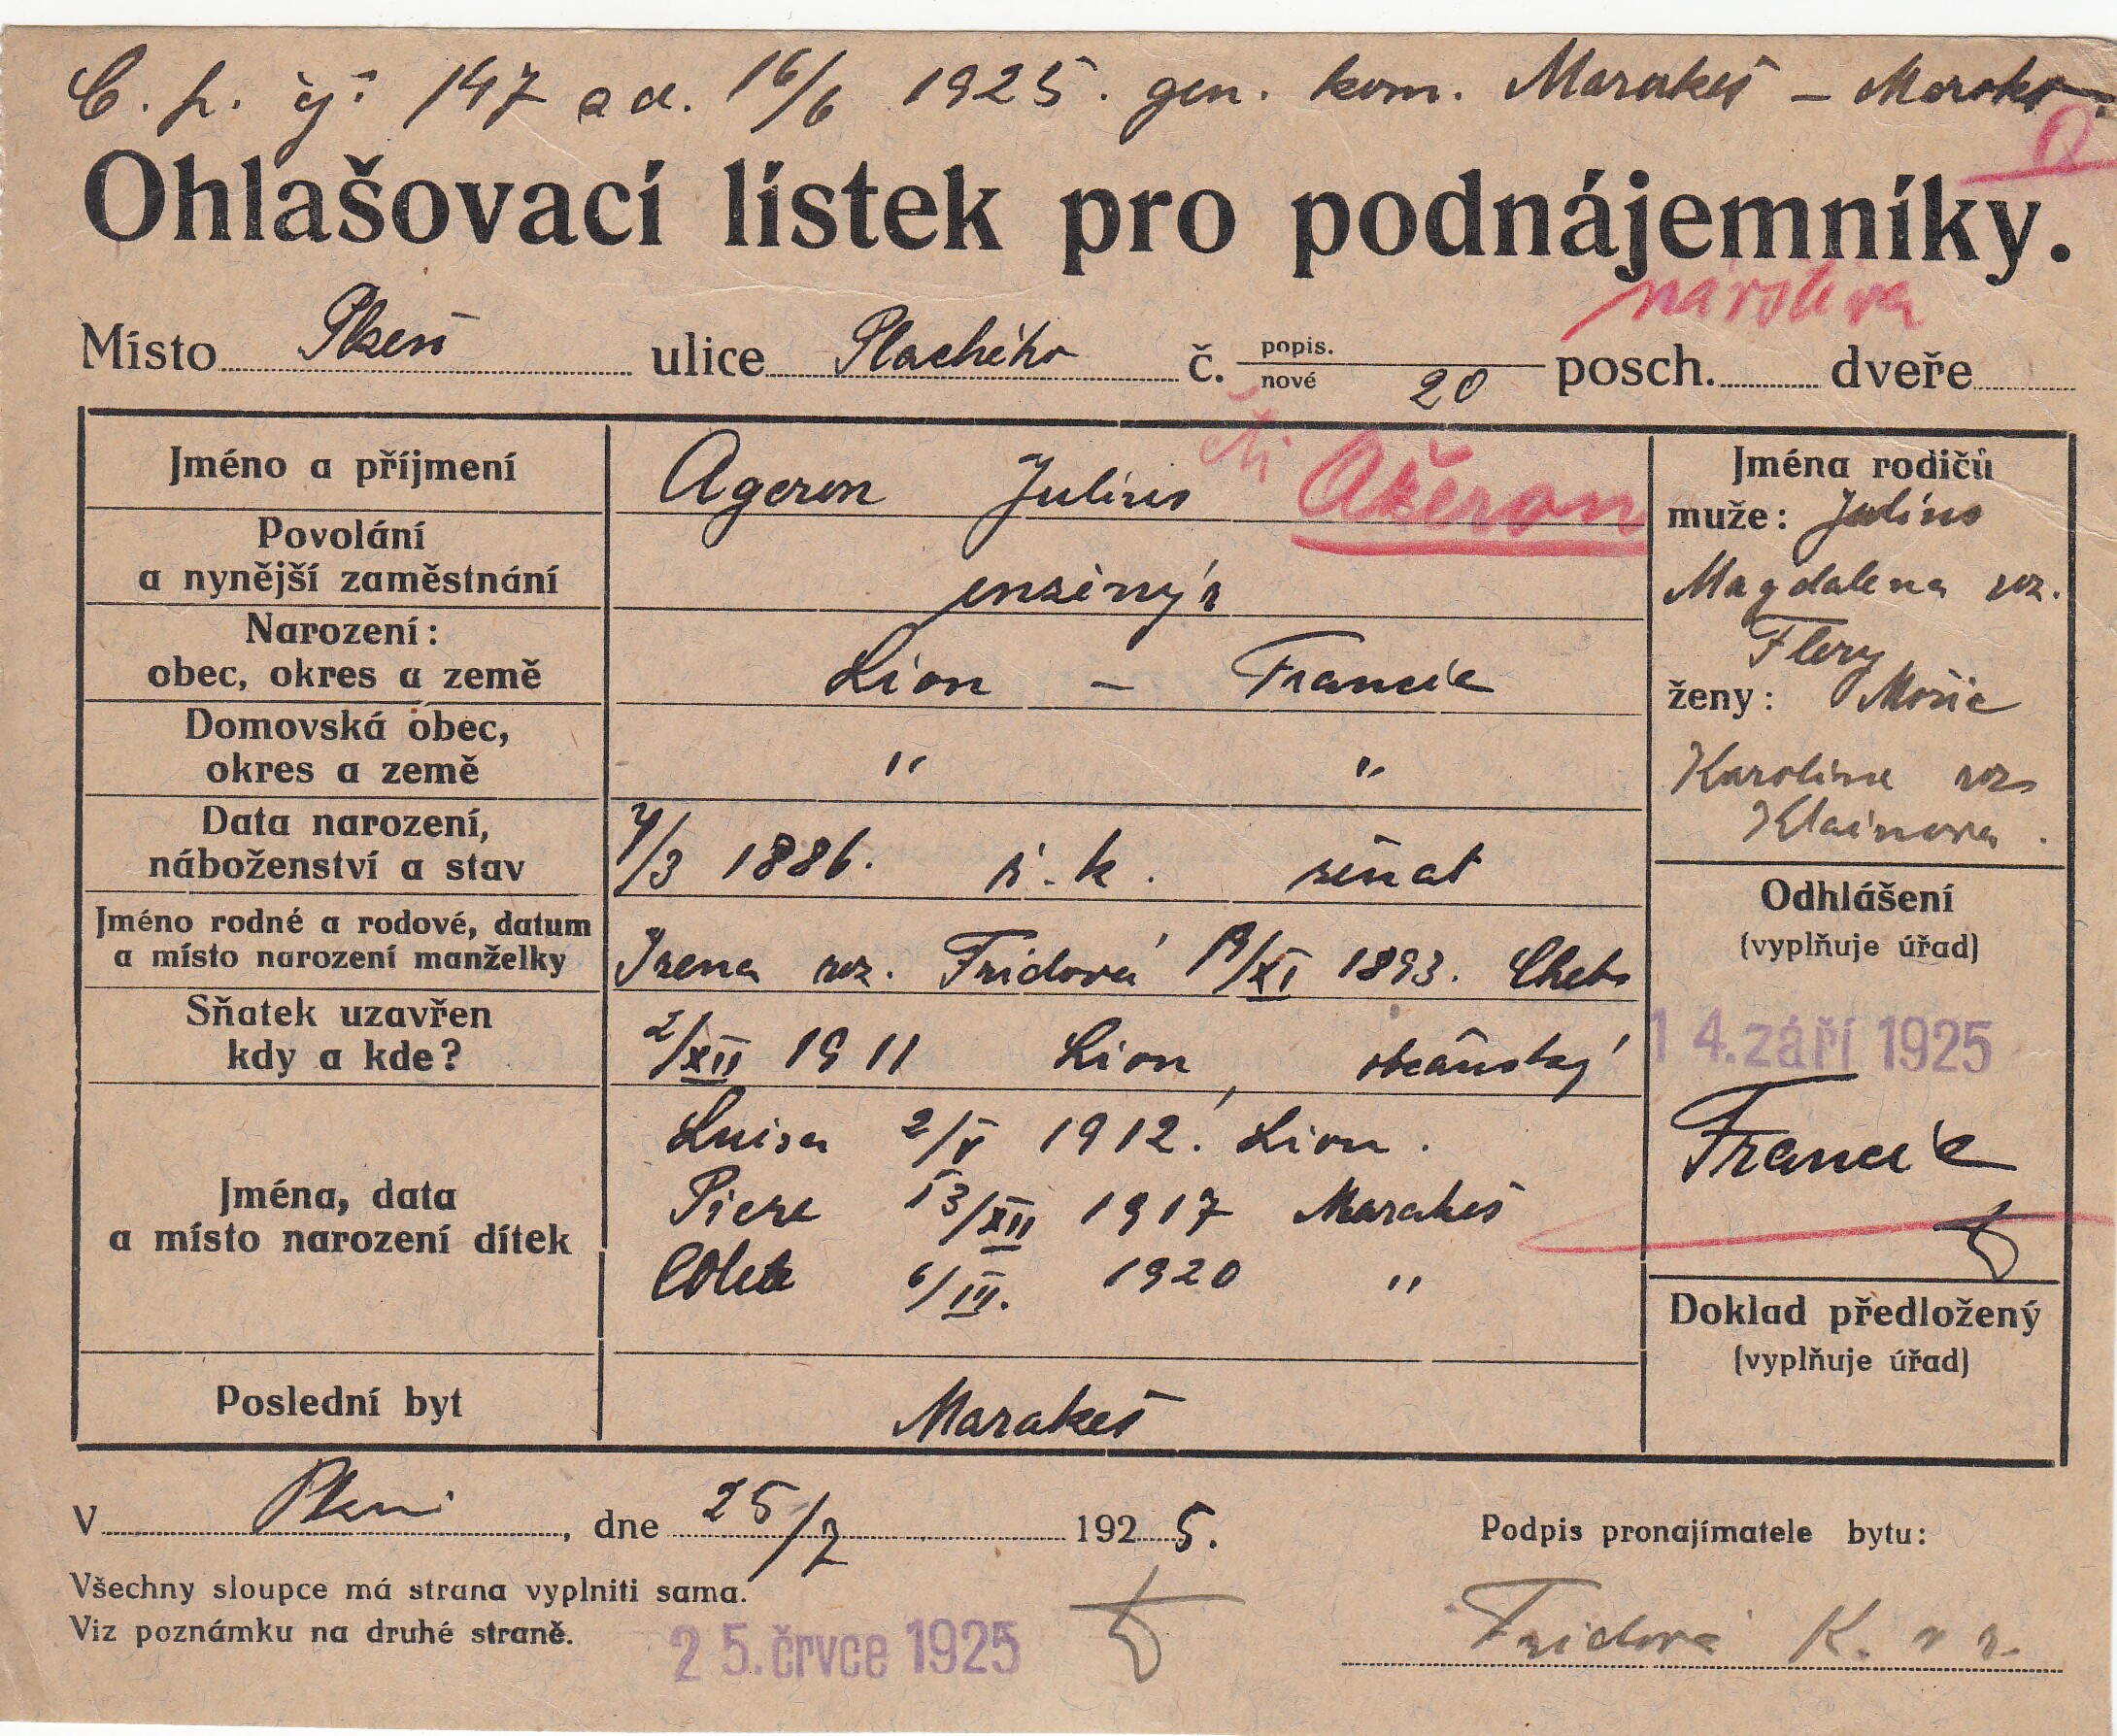 C. p. čj. 147 a d. 16/6 1925. gen. kom. Marakeš – Maroko.
Ohlašovací lístek pro podnájemníky.
Místo Plzeň ulice Plachého č. popis. nové 20 posch. dveře
Jméno a příjmení
Ageron Julius čti Ažeron
Povolání
a nynější zaměstnání
inženýr
Narození:
obec, okres a země
Lion – Francie
Domovská obec,
okres a země
" "
Data narození,
náboženství a stav
4/3 1886. ř. k. ženat
Jméno rodné a rodové, datum
a místo narození manželky
Irena roz. Fridová 19/XI 1893. Cheb
Sňatek uzavřen
kdy a kde?
2/XII 1911 Lion, občanský
Jména, data
a místo narození dítek
Luisa 2/V 1912. Lion.
Piere 13/XII 1917 Marakeš
Colete 6/III. 1920 "
Poslední byt
Marakeš
Jména rodičů
muže: Julius
Magdalena roz.
Flery
ženy: Mořic
Karolina roz
Klainova.
Odhlášení
(vyplňuje úřad)
14. září 1925
Francie
Doklad předložený
(vyplňuje úřad)
V Plzni, dne 25/7 1925.
Podpis pronajímatele bytu:
Všechny sloupce má strana vyplniti sama.
Viz poznámku na druhé straně.
25. črvce 1925
Fridová K. v r.